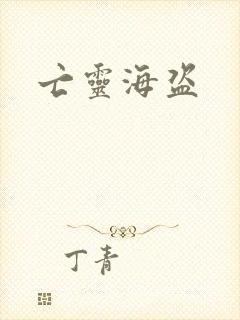 亡靈海盜
丁青